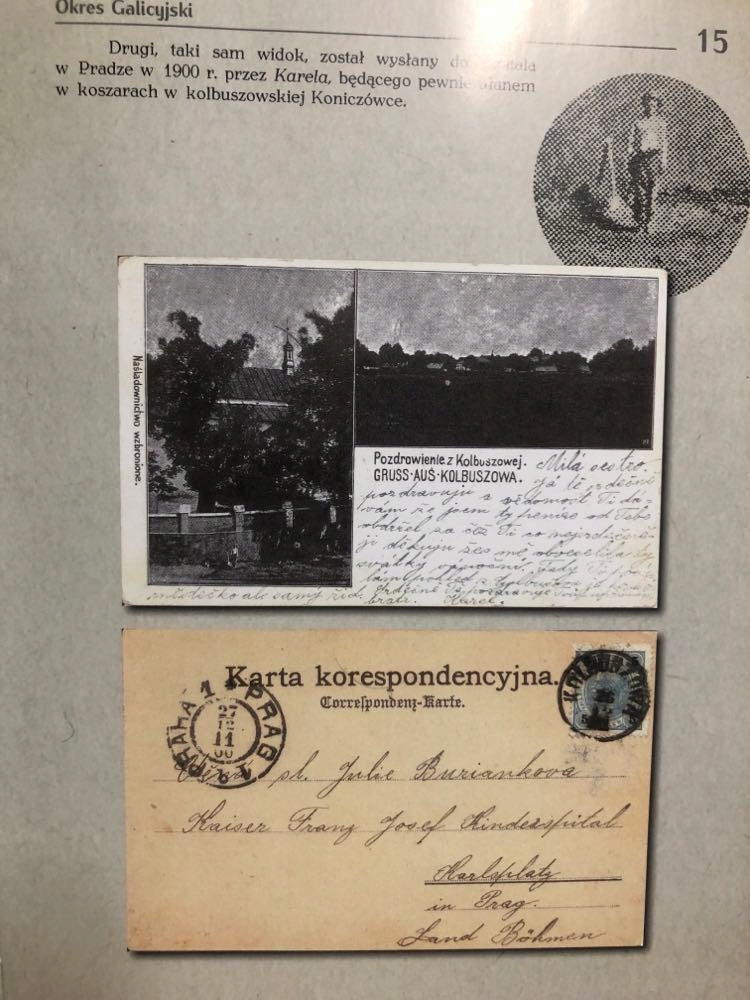 Okres Galicyjski
15
Drugi, taki sam widok, został wysłany do
w Pradze w 1900 r. przez Karela, będącego pewnie ułanem
w koszarach w kolbuszowskiej Koniczówce.
Naśladownictwo wzbronione.
Pozdrowienie z Kolbuszowej.
GRUSS·AUS·KOLBUSZOWA.
Milá sestro.
Já tě srdečně
pozdravuju a vědomost Ti dá-
vám že jsem ty peníze od Tebe
obdržel za což Ti co nejsrdečně-
ji děkuju žes mě obveselila ty
svátky vánoční. Tady Ti
městečko ale samý žid.
bratr. Karel.
Karta korespondencyjna.
Correspondenz-Karte.
PRAHA 1 PRAG
27
12
11
00
KOLBUSZOWA
sl. Julie Buriankova
Kaiser Franz Josef Kinderspital
Karlsplatz
in Prag.
Land Böhmen